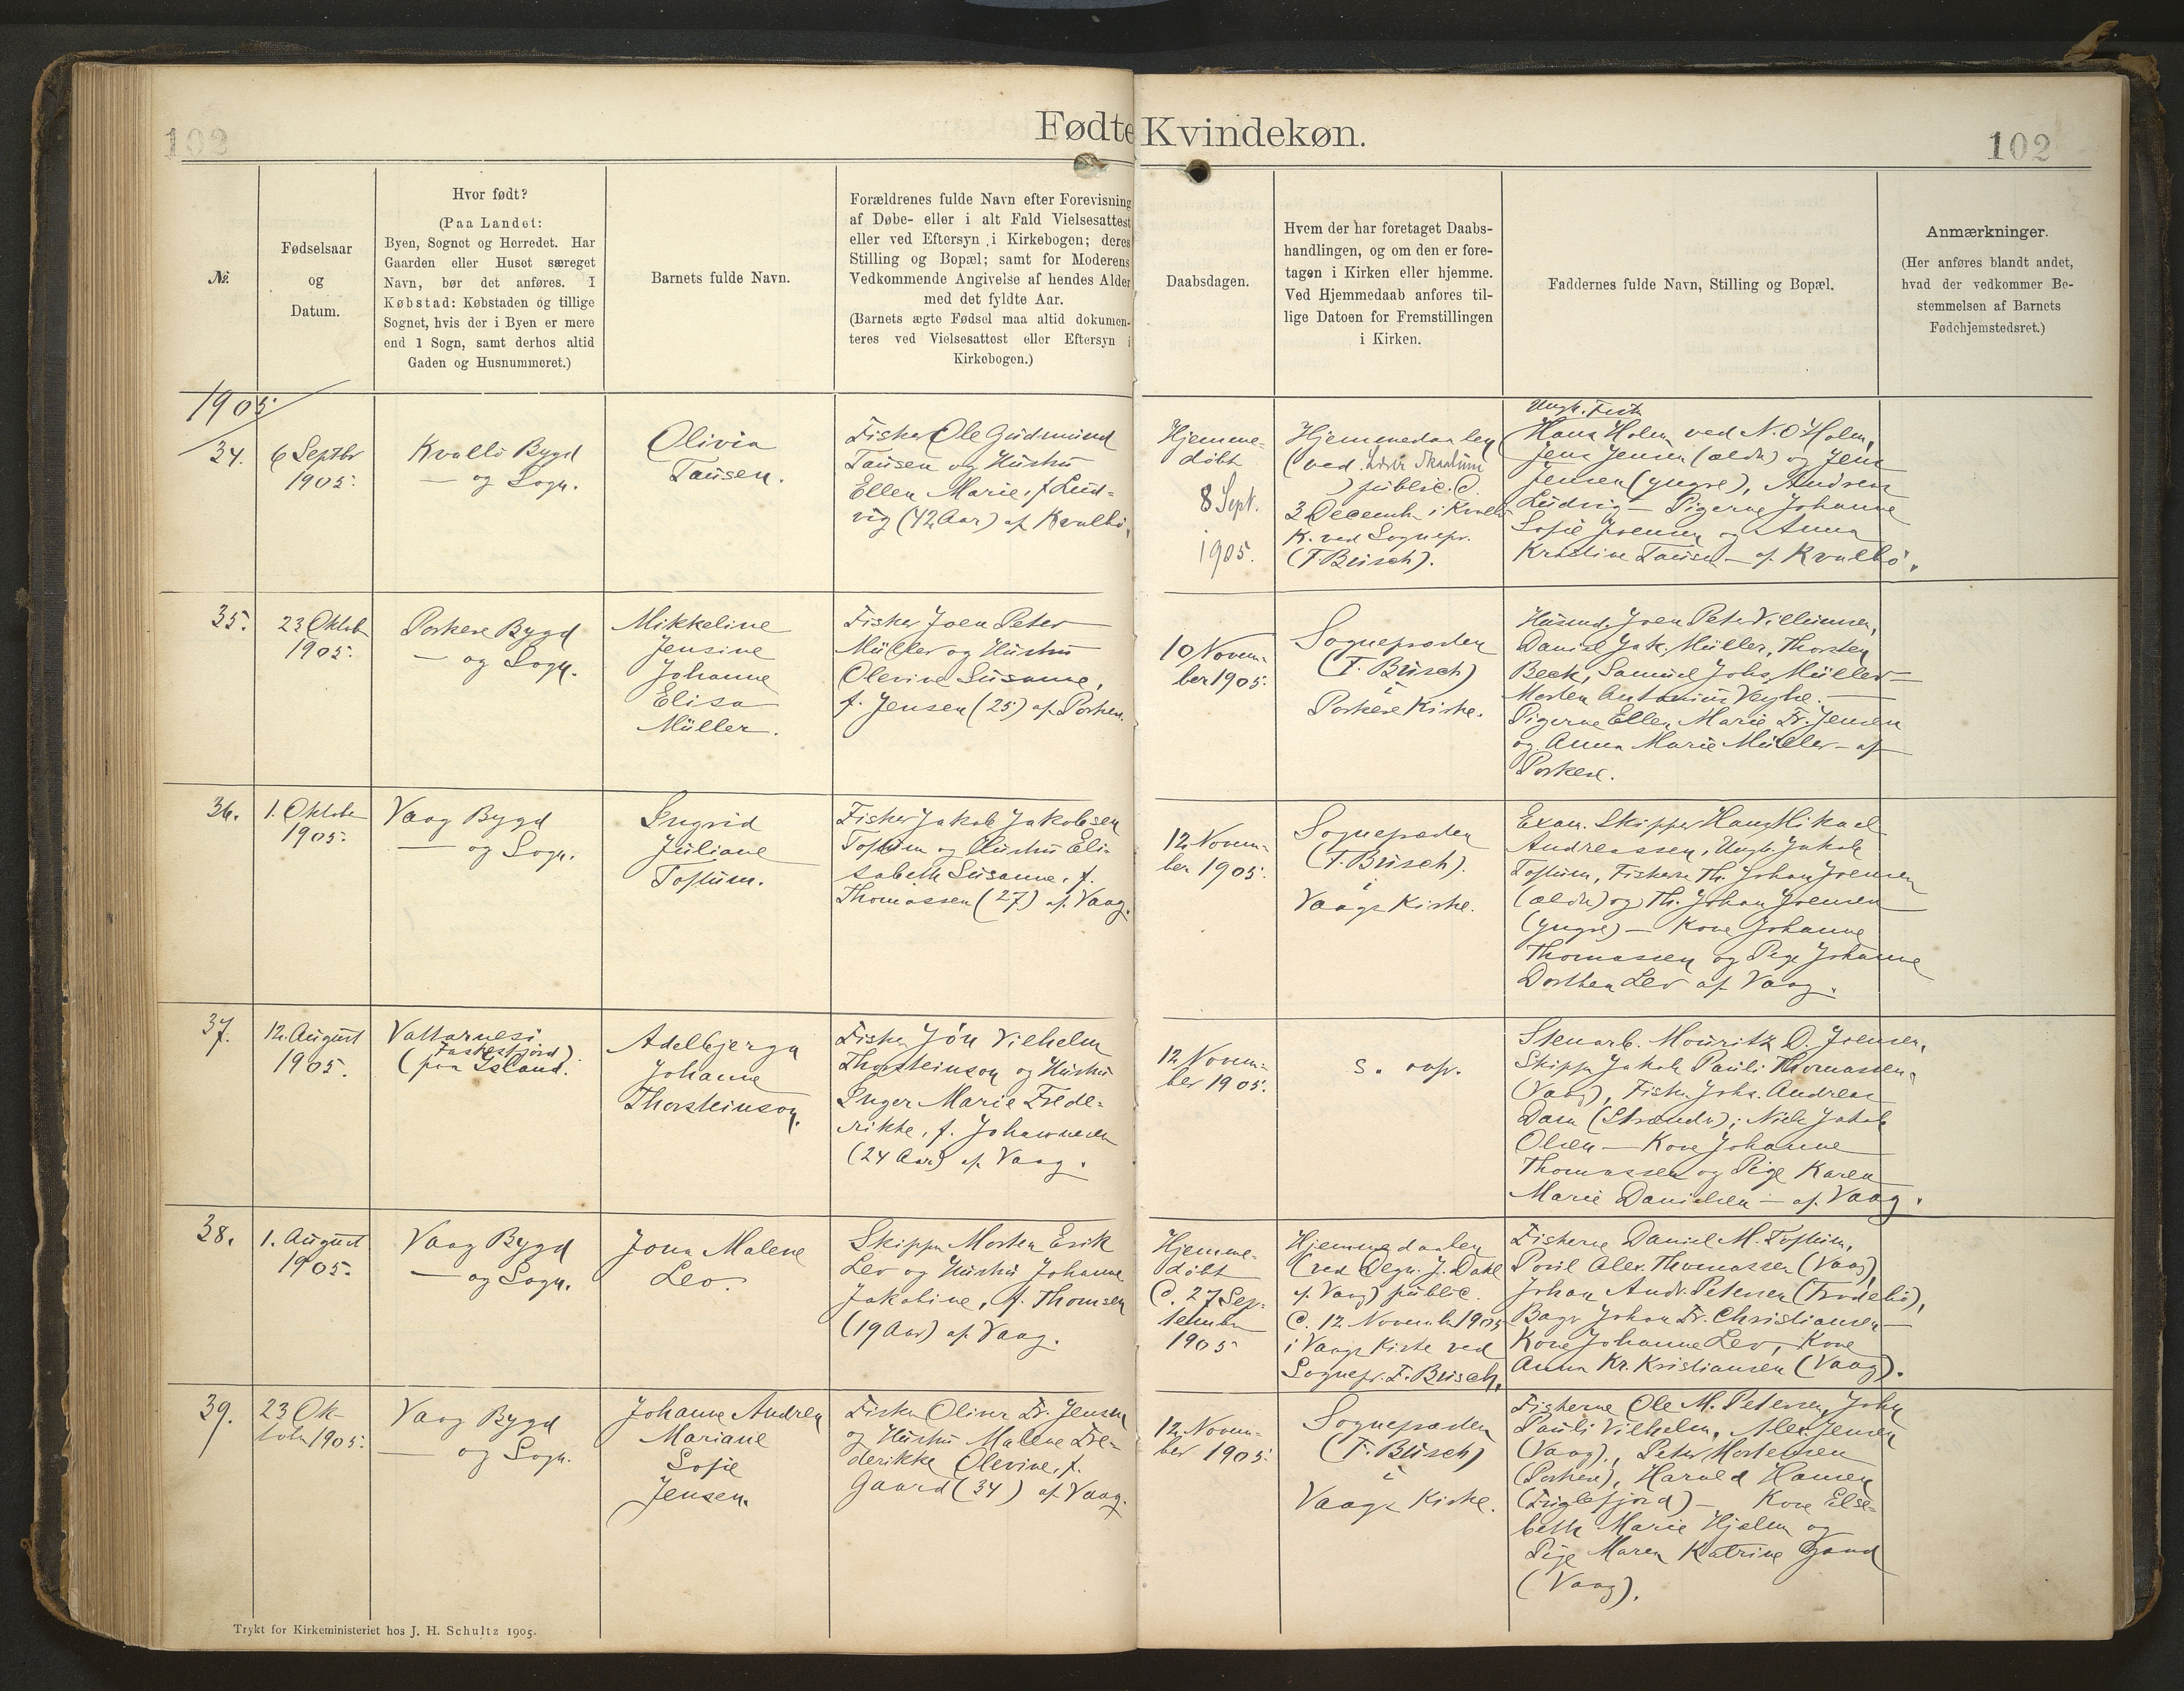 102
Fødte Kvindekøn.
102
№
Fødselsaar
og
Datum.
Hvor født?
(Paa Landet:
Byen, Sognet og Herredet. Har
Gaarden eller Huset særeget
Navn, bør det anføres. I
Købstad: Købstaden og tillige
Sognet, hvis der i Byen er mere
end 1 Sogn, samt derhos altid
Gaden og Husnummeret.)
Barnets fulde Navn.
Forældrenes fulde Navn efter Forevisning
af Døbe- eller i alt Fald Vielsesattest
eller ved Eftersyn i Kirkebogen; deres
Stilling og Bopæl; samt for Moderens
Vedkommende Angivelse af hendes Alder
med det fyldte Aar.
(Barnets ægte Fødsel maa altid dokumen-
teres ved Vielsesattest eller Eftersyn i
Kirkebogen.)
Daabsdagen.
Hvem der har foretaget Daabs-
handlingen, og om den er fore-
tagen i Kirken eller hjemme.
Ved Hjemmedaab anføres til-
lige Datoen for Fremstillingen
i Kirken.
Faddernes fulde Navn, Stilling og Bopæl.
Anmærkninger.
(Her anføres blandt andet,
hvad der vedkommer Be-
stemmelsen af Barnets
Fødehjemstedsret.)
1905
34.
6 Septbr
1905.
Kvalbö Bygd
— og Sogn.
Olivia
Tausen.
Fisker Ole Gudmund
Tausen og Hustru
Ellen Marie, f. Lud-
vig (42 Aar) af Kvalbö.
Hjemme-
döbt
8 Sept.
1905.
Hjemmedaaben
(ved Lærer
) public. d.
3 December i Kvalbö
K. ved Sognepr.
(F. Büsch).
Ungk. Fisk.
Hans Holm ved N. O. Holm,
Jens Jensen (ældr) og Jens
Jensen (yngre), Andreas
Ludvig — Pigerne Johanne
Sofie Joensen og Anna
Kristine Tausen — af Kvalbö.
35.
23 Oktob
1905.
Porkere Bygd
— og Sogn.
Mikkeline
Jensine
Johanne
Elisa
Müller.
Fisker Joen Peter
Müller og Hustru
Olevine Susanne,
f. Jensen (25) af Porkere.
10 Novem-
ber 1905.
Sognepræsten
(F. Büsch)
i
Porkere Kirke.
Husmd. Joen Peter Villumsen,
Daniel Jak. Müller, Thorsten
Beck, Samuel Johs. Müller —
Morten Antonius Vegbe. —
Pigerne Ellen Marie Fr. Jensen
og Anna Marie Müller — af
Porkere.
36.
1. Oktober
1905.
Vaag Bygd
— og Sogn.
Ingrid
Juliane
Toftum.
Fisker Jakob Jakobsen
Toftum og Hustru Eli-
sabeth Susanne, f.
Thomassen (27) af Vaag.
12 Novem-
ber 1905.
Sognepræsten
(F. Büsch).
i
Vaags Kirke.
Exam. Skipper Hans Mikael
Andreassen, Ungk. Jakob
Toftum, Fiskerne Th. Johan Joensen
(ældr) og Th. Johan Joensen
(yngre) — Kone Johanne
Thomassen og Pige Johanne
Dorthea Lev af Vaag.
37.
12. August
1905.
Vattarnesi
(Faskrudsfjord)
(paa Island.
Adelbjerga
Johanne
Thorsteinson.
Fisker Jón Vilhelm
Thorsteinson og Hustru
Inger Marie Frede-
rikke, f. Johannesen
(24 Aar) af Vaag.
12 Novem-
ber 1905.
s. ovf.
Stenarb. Mouritz D. Joensen,
Skipper Jakob Pauli Thomassen
(Vaag), Fisker Johs. Andreas
Dam (Strænder); Niels Jakob
Olsen — Kone Johanne
Thomassen og Pige Karen
Marie Danielsen — af Vaag.
38.
1. August
1905.
Vaag Bygd
— og Sogn.
Jona Malene
Lev.
Skipper Morten Erik
Lev og Hustru Johanne
Jakobine, f. Thomsen
(19 Aar) af Vaag.
Hjemme-
döbt
d. 27 Sep-
tember
1905
Hjemmedaaben
(ved Degn J. Dahl
af Vaag) public.
d. 12 November 1905
i Vaags Kirke ved
Sognepr. F. Büsch.
Fiskerne Daniel M. Toftum,
Poul Alex. Thomassen (Vaag),
Johan Andr. Petersen (Frodebö),
Bager Johan Fr. Christiansen —
Kone Johanne Lev, Kone
Anna Kr. Kristiansen (Vaag).
39.
23 Ok-
tober 1905.
Vaag Bygd
— og Sogn.
Johanne Andrea
Mariane
Sofie
Jensen.
Fisker Oliver Fr. Jensen
og Hustru Malene Fre-
derikke Olevine, f.
Gaard (34) af Vaag.
12 Novem-
ber 1905.
Sognepræsten
(F. Büsch)
i
Vaags Kirke.
Fiskerne Ole M. Petersen, John
Pauli Vilhelm, Alex Jensen
(Vaag), Peter Mortensen
(Porkere), Harald Hansen
(Fuglefjord) — Kone Else-
beth Marie Hjelm og
Pige Maren Katrine Gaard
(Vaag).
Trykt for Kirkeministeriet hos J. H. Schultz 1905.